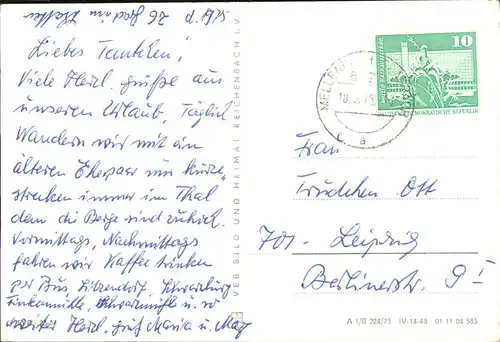 Liebes Tantchen!
Viele Herzl. Grüße aus
unserem Urlaub, Täglich
Wandern wir mit ein
älteren Ehepaar nur kurze
strecken immer im Thal
denn die Berge sind zu hoch.
Vormittags, Nachmittags
fahren wir Kaffee trinken
per Bus Sitzendorf, Schwarzburg
Finkenmühle, Schwarzmühle u.s.w
Herzl. Maria u. Max
VEB BILD UND HEIMAT REICHENBACH i. V.
10
DEMOKRATISCHE REPUBLIK
MELLENB
18.
a
Frau
Trudchen Ott
701- Leipzig
Berlinerstr. 9 I
A 1/B 224/75 IV-14-48 01 11 04 585